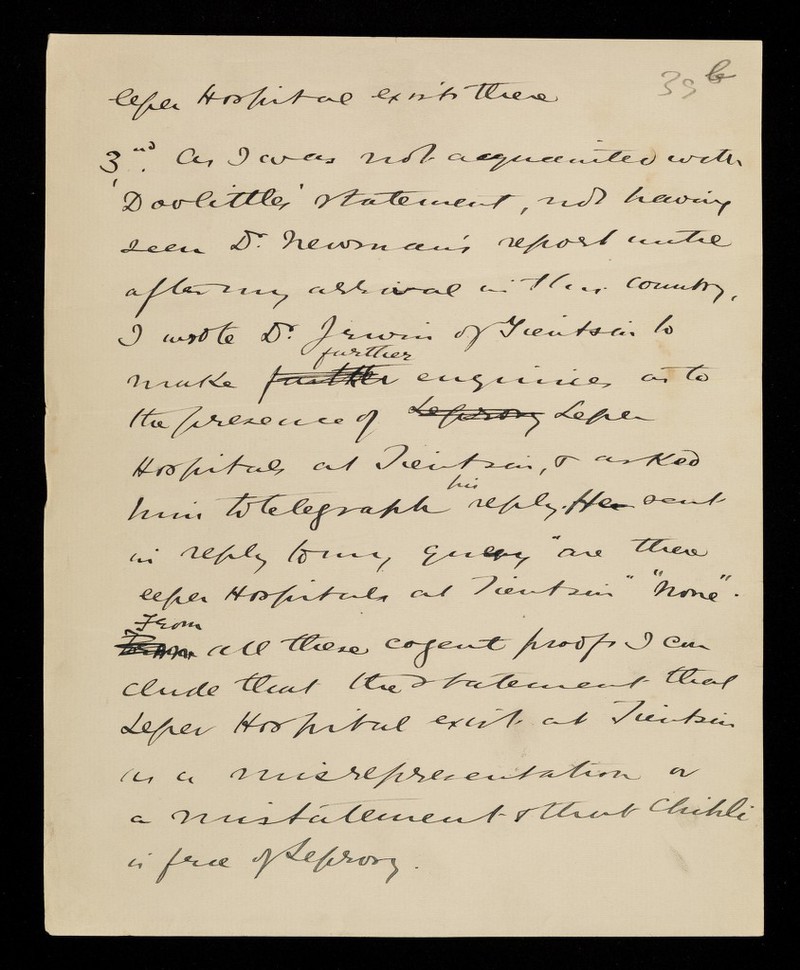 39b
leper Hospital exists there
3nd. As I was not acquainted with
Doolittle's statement, not having
seen Dr. Newman's report until
after my arrival in this country,
I wrote Dr. Irwin of Tientsin to
further
make further enquiries as to
the presence of Leprosy Leper
Hospitals at Tientsin, & asked
his
him to telegraph reply. He sent
in reply to my query "are there
leper Hospitals at Tientsin" "None".
From
all these cogent proofs I con
clude that the statement that
Leper Hospital exist at Tientsin
is a misrepresentation or
a mistatement & that Chihli
is free of Leprosy.